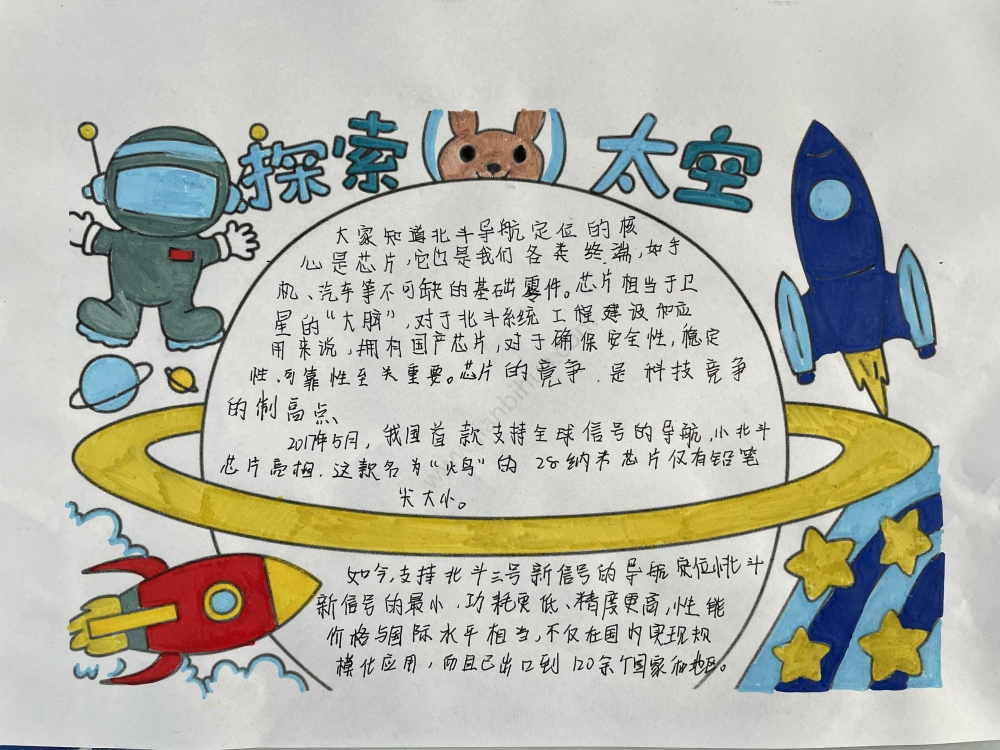 探索太空
大家知道北斗导航定位的核
心是芯片,它也是我们各类终端,如手
机、汽车等不可缺的基础零件。芯片相当于卫
星的“大脑”,对于北斗系统工程建设和应
用来说,拥有国产芯片,对于确保安全性,稳定
性、可靠性至关重要。芯片的竞争,是科技竞争
的制高点、
2017年5月,我国首款支持全球信号的导航,小北斗
芯片亮相.这款名为“火鸟”的28纳米芯片仅有铅笔
尖大小。
如今,支持北斗三号新信号的导航定位北斗
新信号的最小,功耗更低、精度更高,性能
价格与国际水平相当,不仅在国内实现规
模化应用,而且已出口到120余个国家和地区。